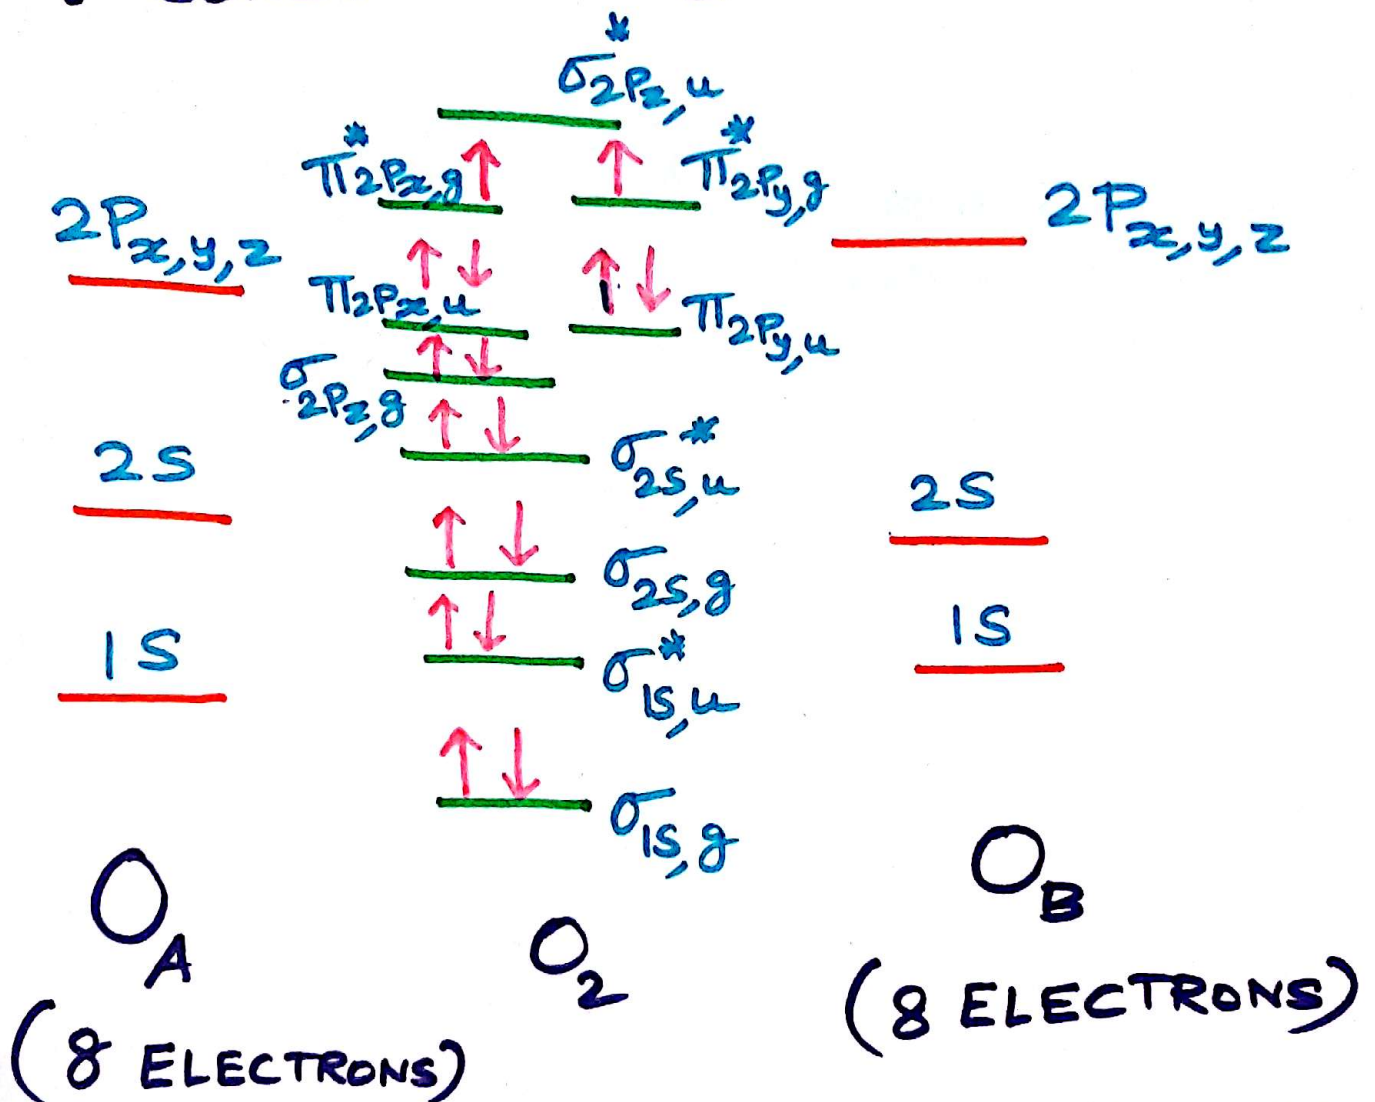 σ*2Pz,u
π*2Px,g
π*2Py,g
2Px,y,z
2Px,y,z
π2Px,u
π2Py,u
σ2Pz,g
σ*2S,u
2S
2S
σ2S,g
1S
1S
σ*1S,u
σ1S,g
OA
O2
OB
(8 ELECTRONS)
(8 ELECTRONS)